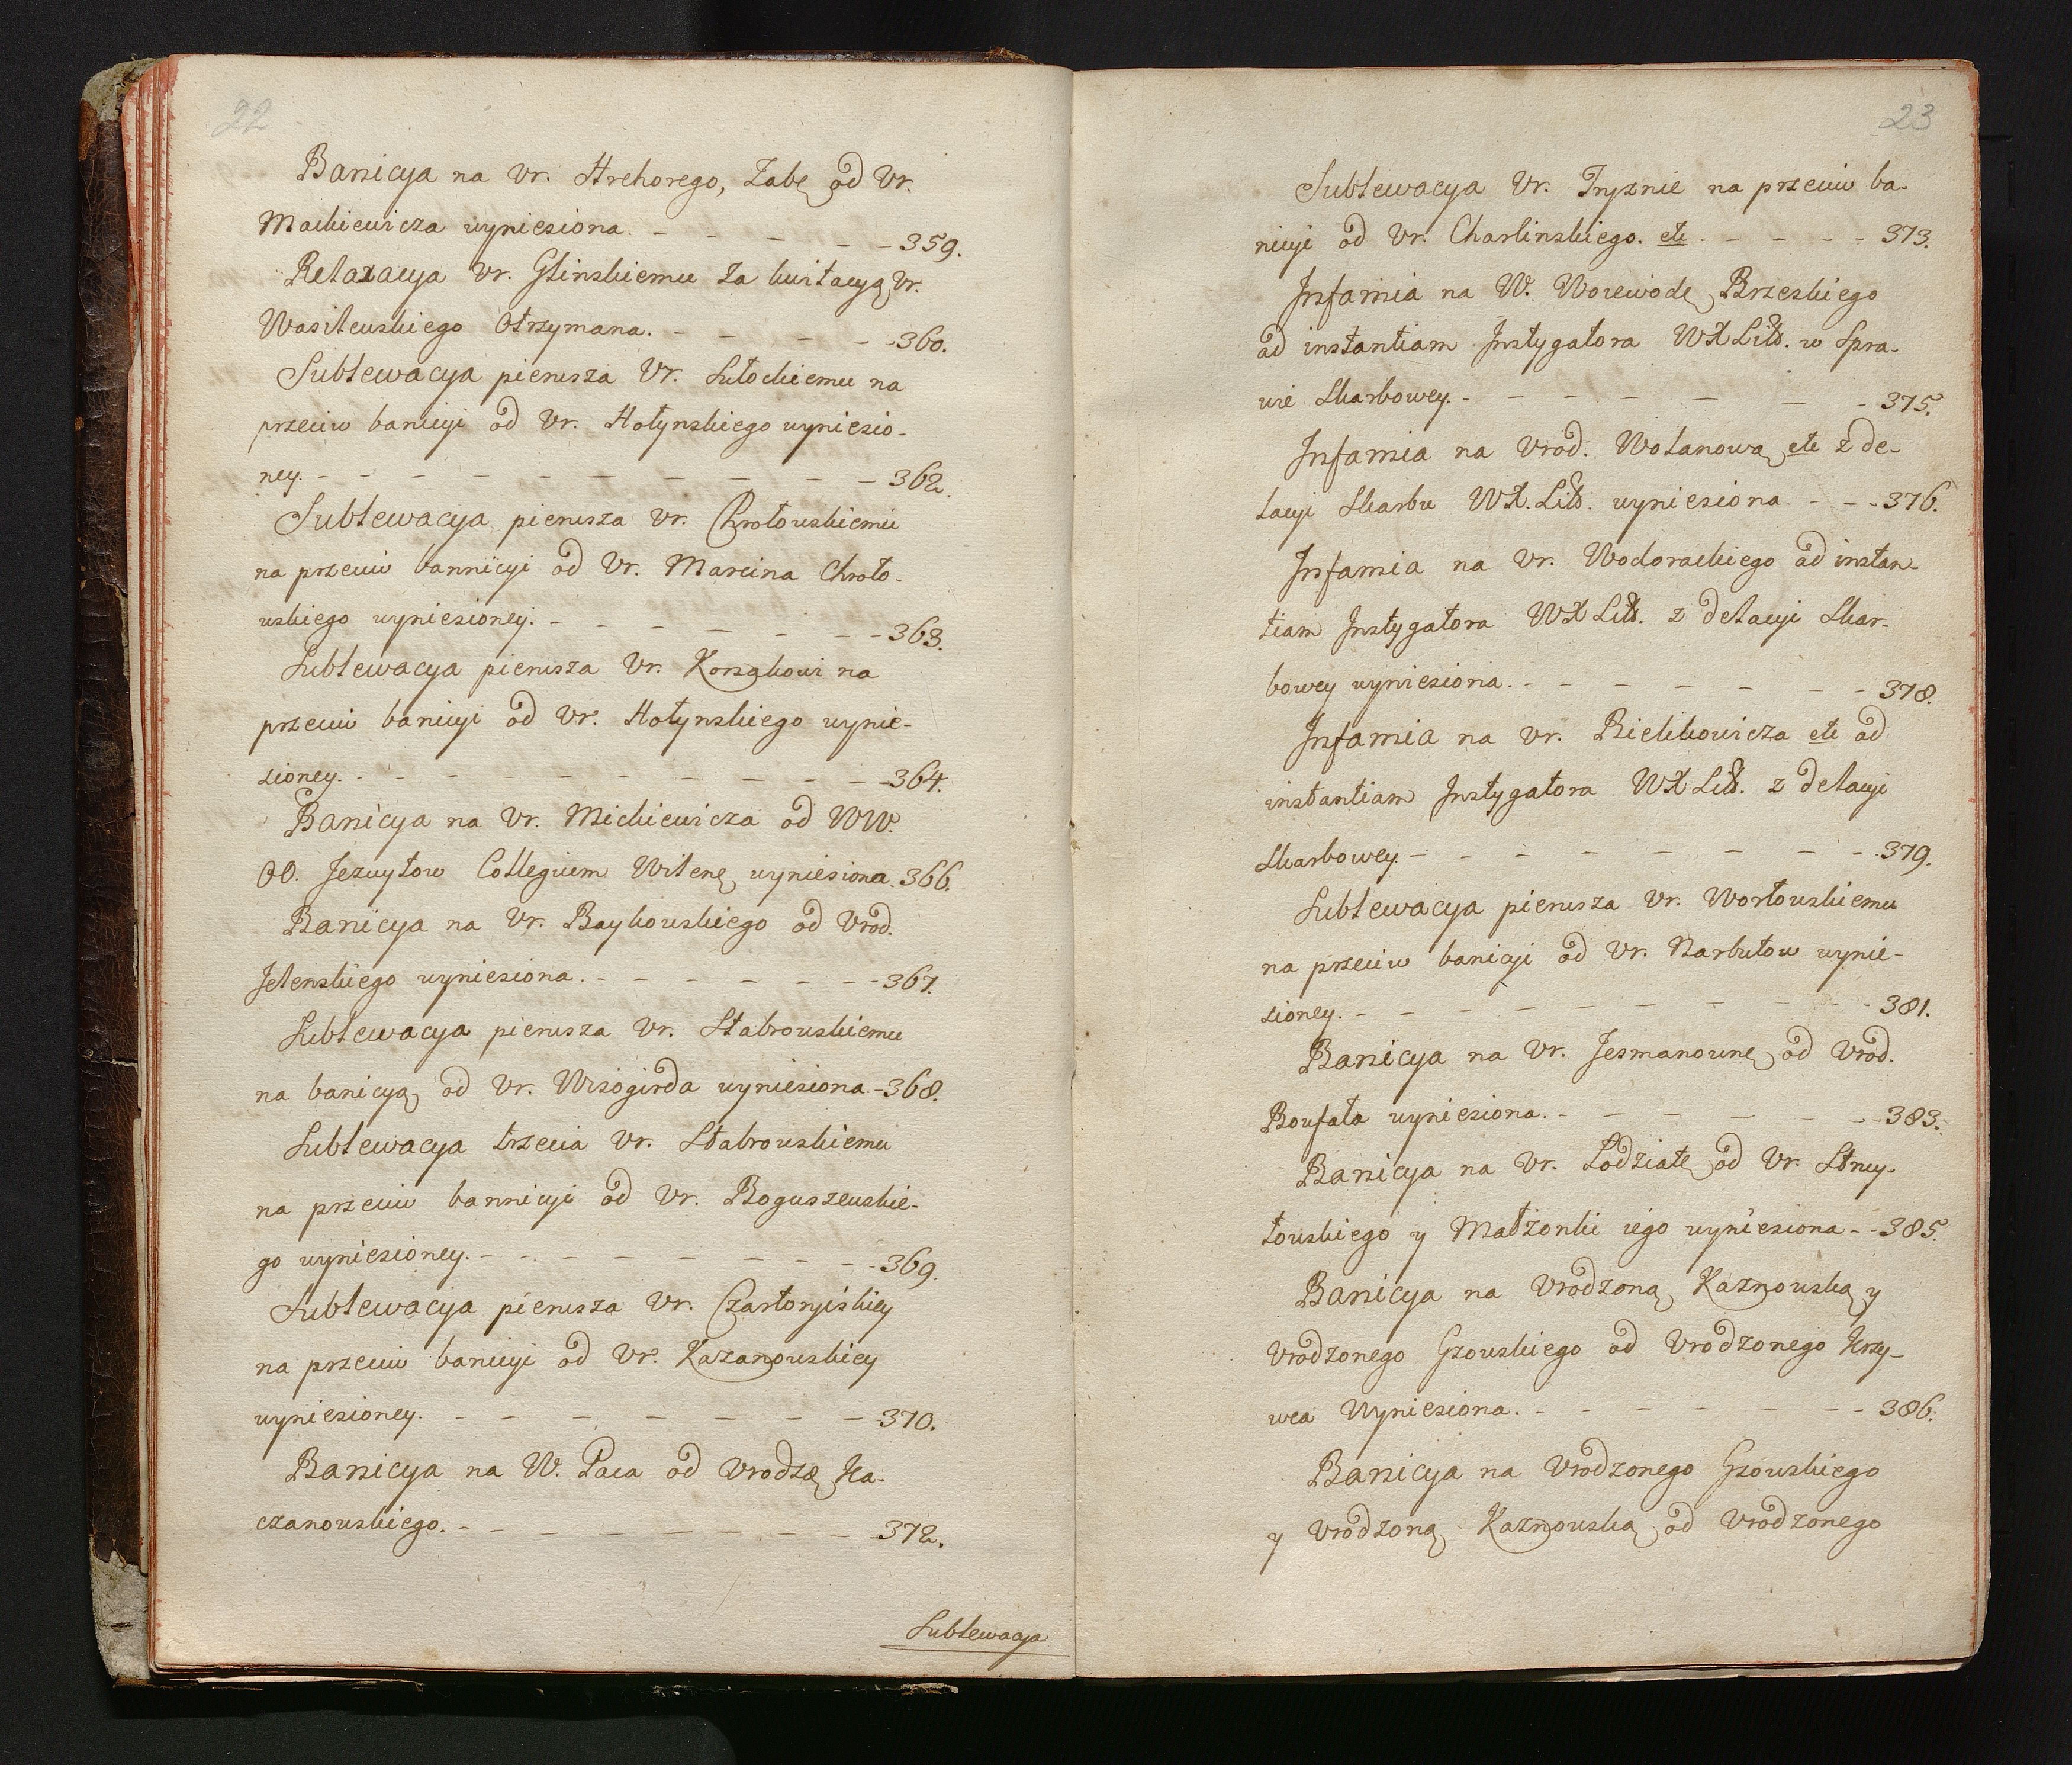 22
Banicya na Ur. Hrehorego, Zabę od Ur.
Mackiewicza wyniesiona. - - - - - 359.
Relaxacya Ur. Glinskiemu za kwitacyą Ur.
Wasilewskiego Otrzymana. - - - - - 360.
Sublewacya pierwsza Ur. Sułockiemu na
przeciw banicyi od Ur. Hołynskiego wyniesio-
ney. - - - - - - - - - - 362.
Sublewacya pierwsza Ur. Chrołowskiemu
na przeciw bannicyi od Ur. Marcina Chroło-
wskiego wyniesioney. - - - - - - - 363.
Sublewacya pierwsza Ur. Korsakowi na
przeciw banicyi od Ur. Hołynskiego wynie-
sioney. - - - - - - - - - - 364.
Banicya na Ur. Mickiewicza od WW.
OO. Jezuytow Collegium Wilenę wyniesiona. 366.
Banicya na Ur. Baykowskiego od Urod.
Jelenskiego wyniesiona. - - - - - - - 367.
Sublewacya pierwsza Ur. Stabrowskiemu
na banicyą od Ur. Wisogirda wyniesiona. - 368.
Sublewacya trzecia Ur. Stabrowskiemu
na przeciw bannicyi od Ur. Boguszewskie-
go wyniesioney. - - - - - - - - 369.
Sublewacya pierwsza Ur. Czartoryiskiey
na przeciw banicyi od Ur. Kazanowskiey
wyniesioney. - - - - - - - 370.
Banicya na W. Paca od Urodzę Ka-
czanowskiego. - - - - - - - - 372.
Sublewacya
23
Sublewacya Ur. Tryznie na przeciw ba-
nicyi od Ur. Charlinskiego. etc - - - - - 373.
Infamia na W. Woiewodę Brzeskiego
ad instantiam Instygatora WX Litt. w Spra-
wie Skarbowey. - - - - - - - 375.
Infamia na Urod. Wolanową etc z de-
lacyi Skarbu WX. Litt. wyniesiona. - - - 376.
Infamia na Ur. Wodorackiego ad instan-
tiam Instygatora WX Litt. z delacyi Skar-
bowey wyniesiona. - - - - - - - 378.
Infamia na Ur. Bielikowicza etc ad
instantiam Instygatora WX Litt. z delacyi
Skarbowey. - - - - - - - - - 379.
Sublewacya pierwsza Ur. Worłowskiemu
na przeciw banicyi od Ur. Narbutow wynie-
sioney. - - - - - - - - - 381.
Banicya na Ur. Jesmanownę od Urod.
Boufała wyniesiona. - - - - - - 383.
Banicya na Ur. Lodziatę od Ur. Stru-
towskiego y Małżonki iego wyniesiona - - 385.
Banicya na Urodzoną Kaznowską y
Urodzonego Gzowskiego od Urodzonego Krzy-
wca Wyniesiona. - - - - - - - 386.
Banicya na Urodzonego Gzowskiego
y Urodzoną Kaznowską od Urodzonego